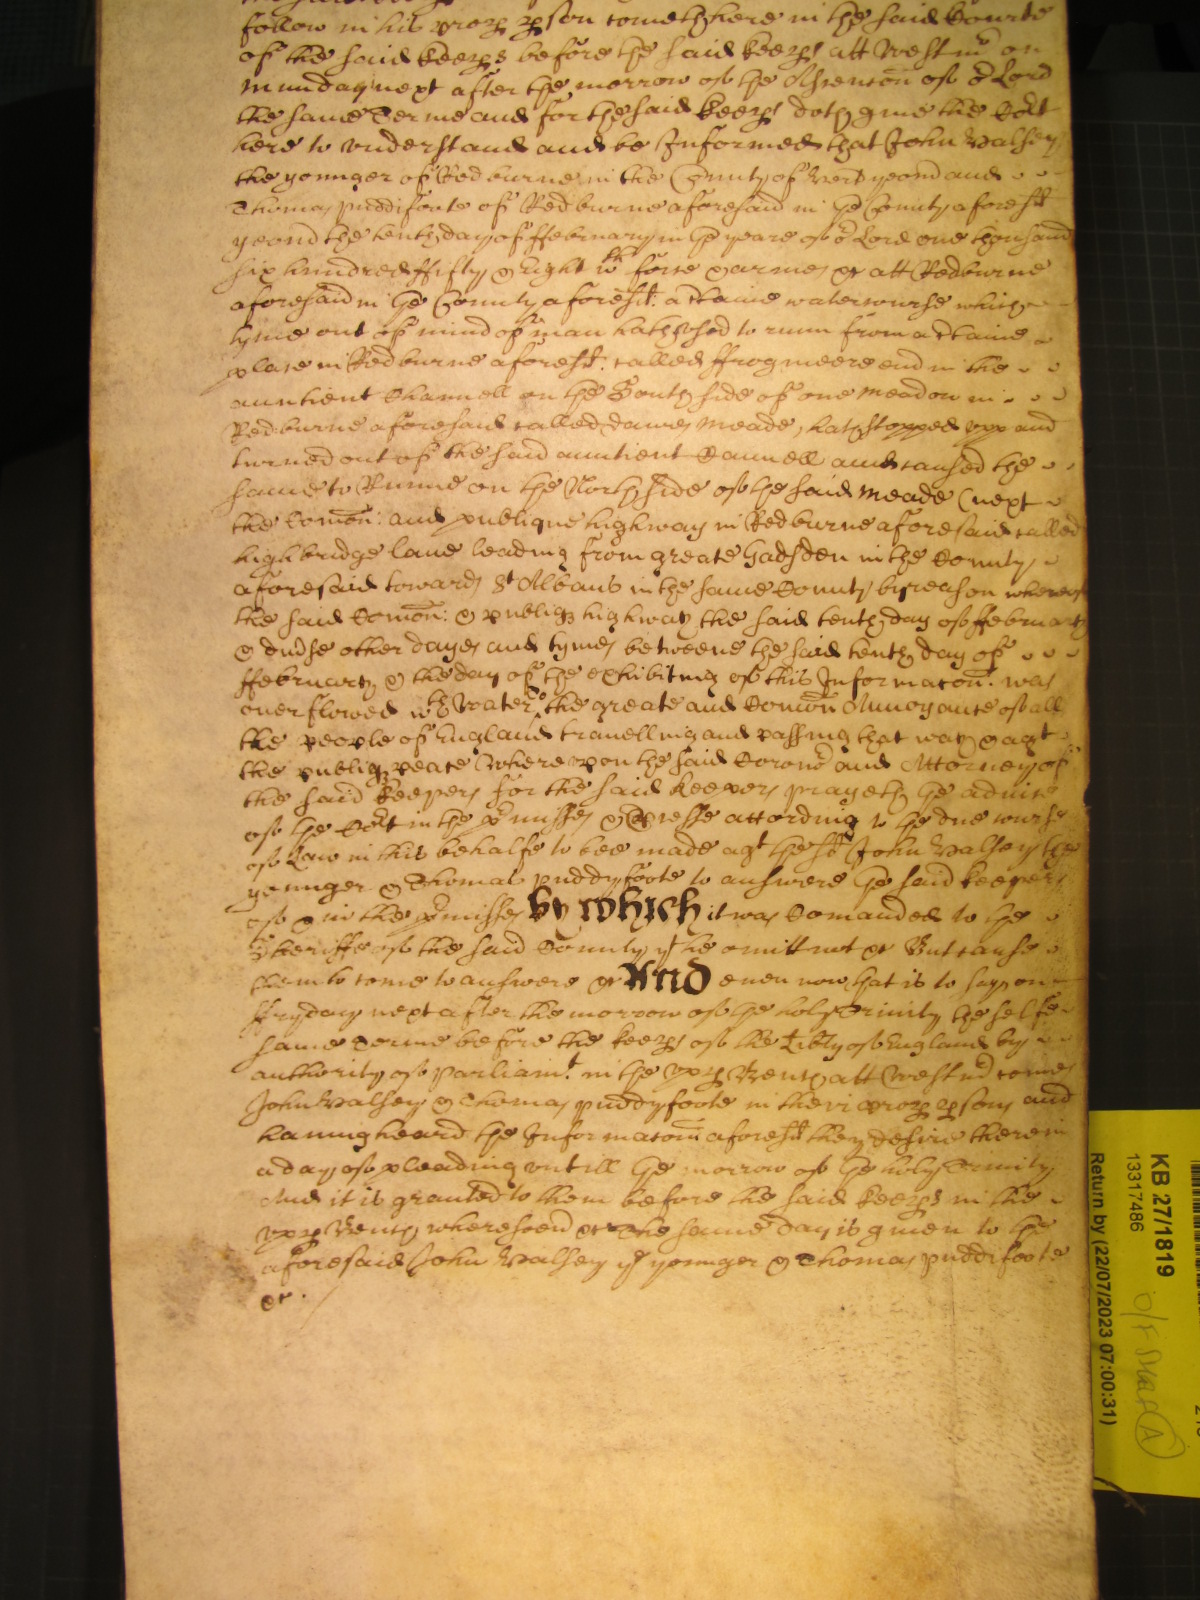 follow in his prop pson cometh here in the said Courte
of the said keeps before the said keeps att Westmr on
Munday next after the morrow of the Ascencon of or Lord
the same Terme and for the said keeps doth give the Cort
here to understand and be Informed that John Halsey
the younger of Redburne in the County of Hert yeom and
Thomas puddifoote of Redburne aforesaid in the County aforesd
yeom the tenth day of ffebruary in the yeare of or Lord one thousand
six hundred ffifty & Eight wth force & armes &c att Redburne
aforesaid in the County aforesd: a ctaine watercourse which
tyme out of mind of man hath used to runn from a ctaine
place in Redburne aforesd: called ffrogmeere end in the
auntient Channell on the South side of one meadow in
Redburne aforesaid called dames Meade, hath stopped upp and
turned out of the said auntient Cannell and caused the
same to Runne on the North side of the said Meade (next
the Comon: and publique highway in Redburne aforesaid called
high bridge lane leading from greate Gadsden in the County
aforesaid towards St Albans in the same County by reason whereof
the said Comon: & publiq highway the said tenth day of ffebruary
& divse other dayes and tymes betweene the said tenth day of
ffebruary & the day of the exhibiting of this Informacon: was
overflowed wth Water, to the greate and Comon Annoyance of all
the people of England travelling and passing that way & agt
the publiq peace Whereupon the said Coronr and Attorney of
the said keepers for the said keepers prayeth the advice
of the Cort in the pmisses & due pcesse according to the due course
of Law in this behalfe to bee made agt the sd John Halsey the
younger & Thomas puddyfoote to answere the said keepers
of & in the pmisses by which it was Comanded to the
Sheriffe of the said County yt he omitt not &c But cause
them to come to answere &c And even now that is to say on
ffryday next after the morrow of the holy Trinity the selfe
same Terme before the keeps of the Libty of England by
authority of Parliamt. in the upp Bench att Westmr comes
John Halsey & Thomas puddyfoote in their prop psons and
having heard the Informacon aforesd they desire therein
a day of pleading untill the morrow of the holy Trinity
And it is granted to them before the said keeps in the
upp Bench wheresoevr &c The same day is given to the
aforesaid John Halsey ye younger & Thomas puddifoote
&c.
KB 27/1819
13317486
Return by (22/07/2023 07:00:31)
A